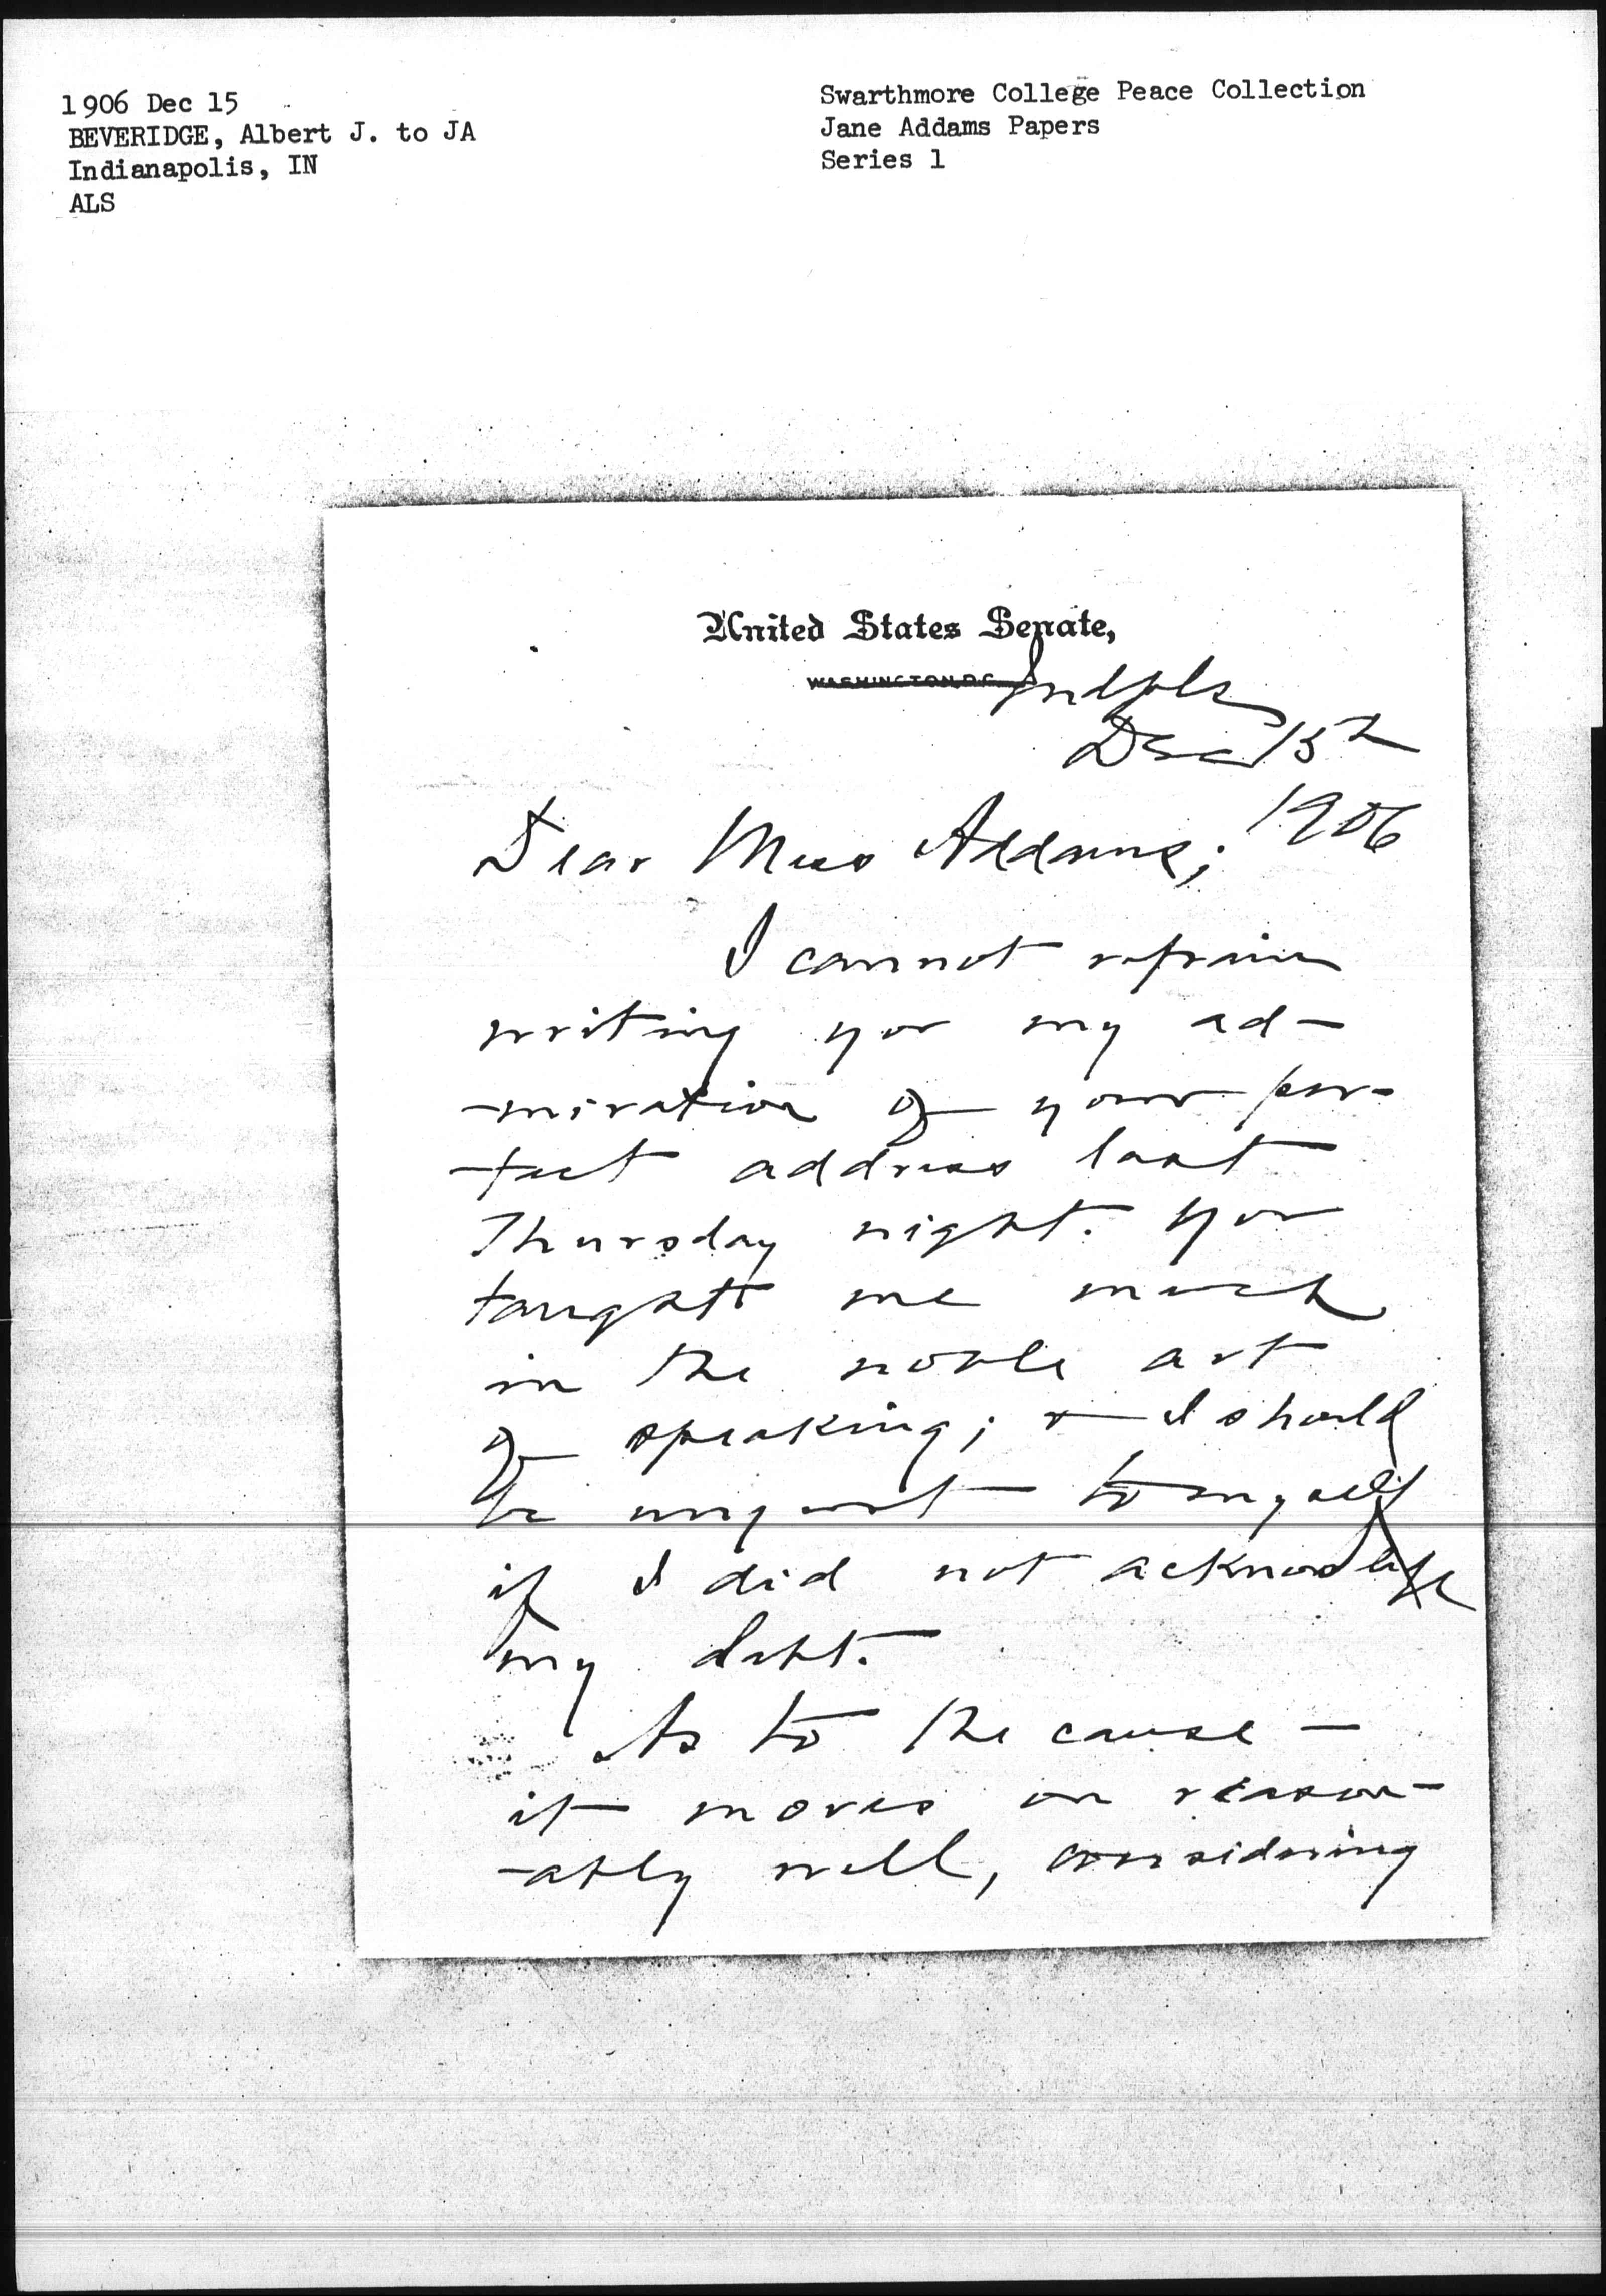 1906 Dec 15
BEVERIDGE, Albert J. to JA
Indianapolis, IN
ALS
Swarthmore College Peace Collection
Jane Addams Papers
Series 1
United States Senate,
WASHINGTON, D.C.
Indpls
Dec 15th
1906
Dear Miss Addams;
I cannot refrain
writing you my ad-
-miration of your per-
-fect address last
Thursday night. You
taught me much
in the noble art
of speaking; & I should
be unjust to myself
if I did not acknowledge
my debt.
As to the cause —
it moves on reason-
-ably well, considering